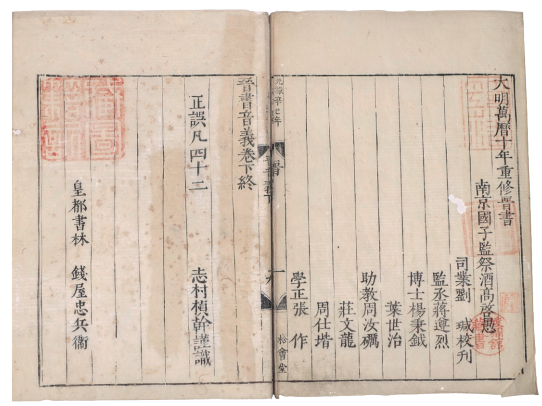 大明萬曆十年重修晉書
南京國子監祭酒高啓愚
司業劉 瑊校刊
監丞蔣遵烈
博士楊秉鉞
葉世治
助教周汝礪
莊文龍
周仕堦
學正張 作
松會堂
晉書音義卷下終
正誤凡四十二 志村楨幹謹識
皇都書林 錢屋忠兵衞